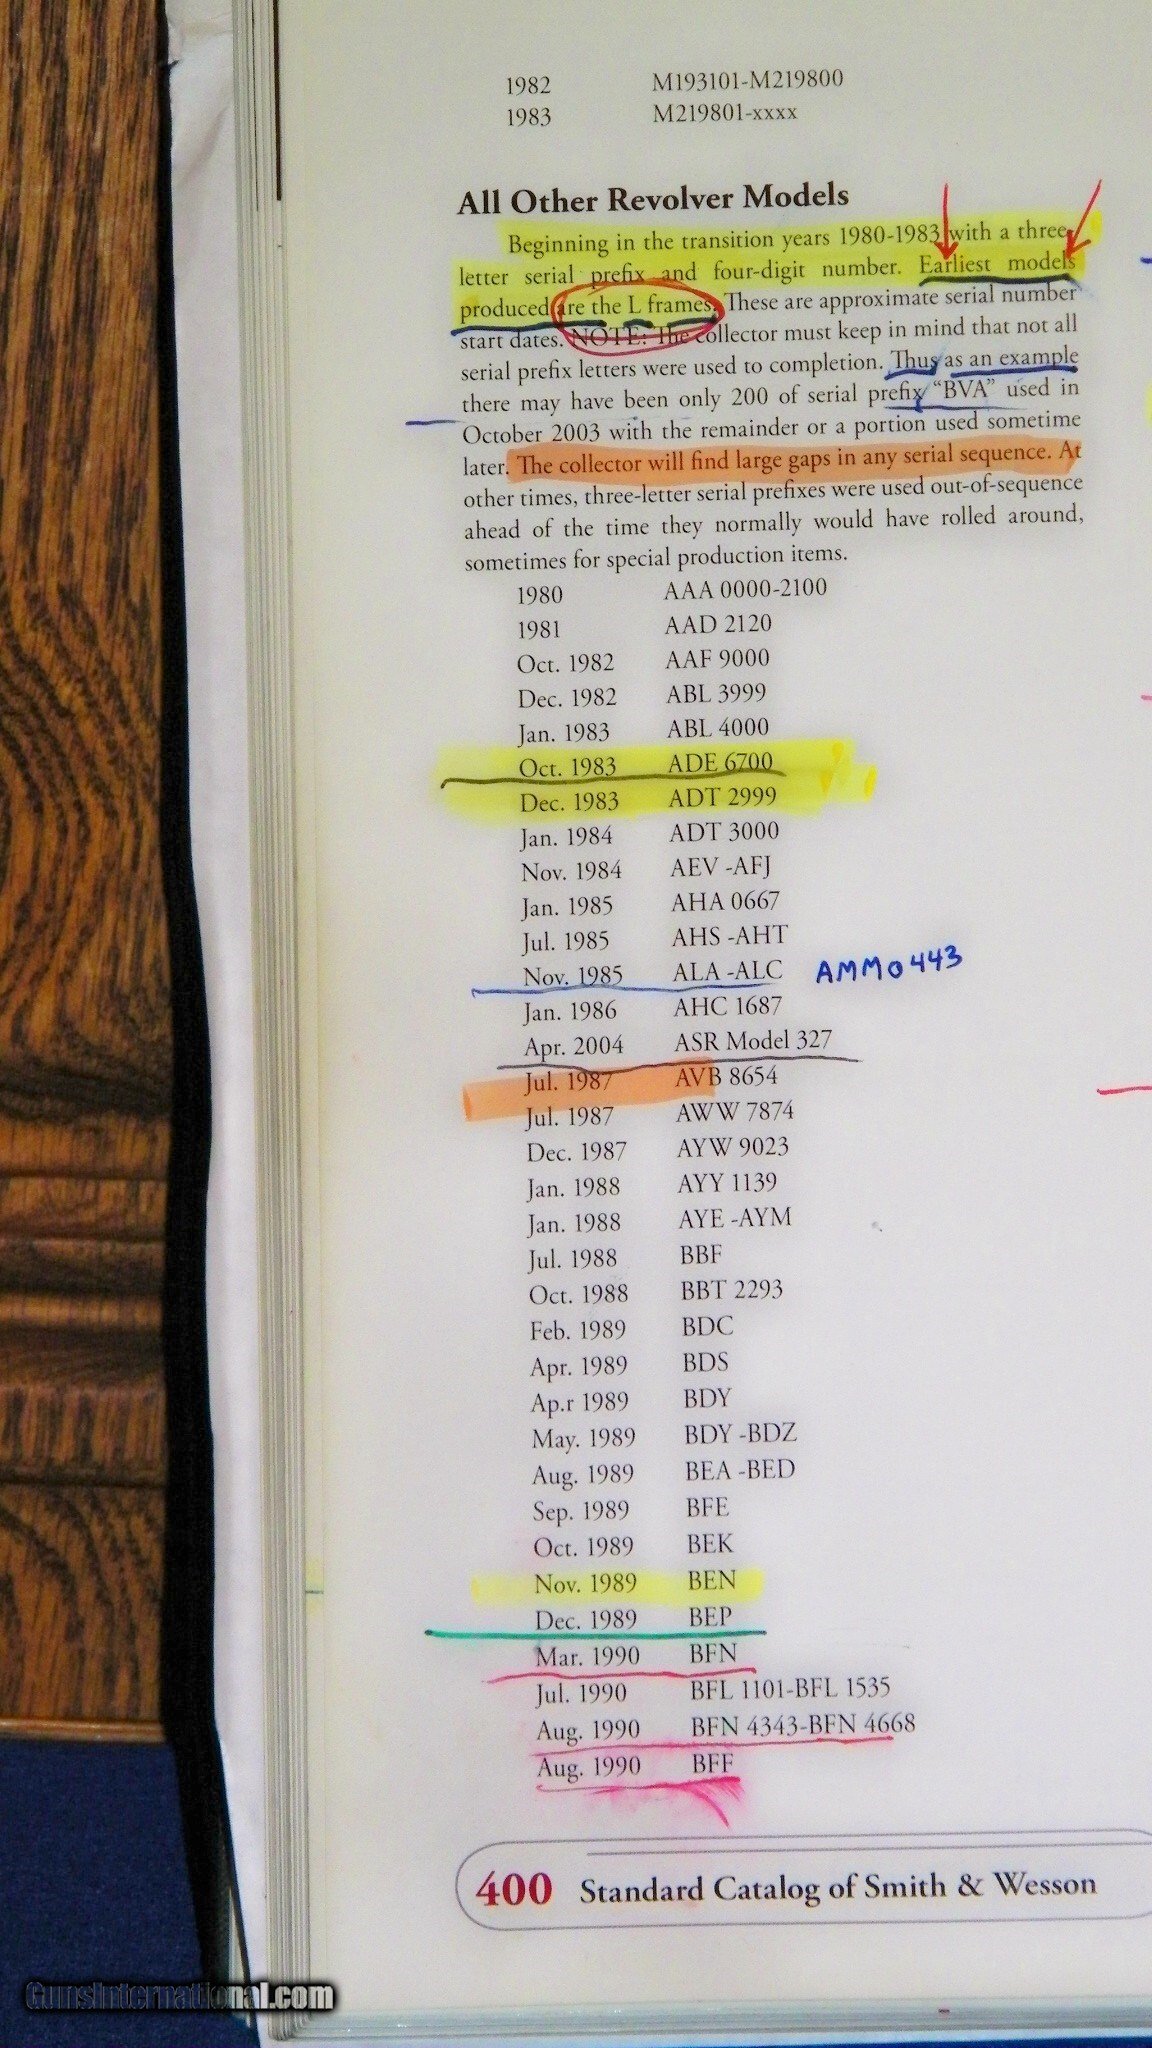 1982 M193101-M219800
1983 M219801-xxxx
All Other Revolver Models
Beginning in the transition years 1980-1983 with a three-
letter serial prefix and four-digit number. Earliest models
produced are the L frames. These are approximate serial number
start dates. NOTE: The collector must keep in mind that not all
serial prefix letters were used to completion. Thus as an example
there may have been only 200 of serial prefix “BVA” used in
October 2003 with the remainder or a portion used sometime
later. The collector will find large gaps in any serial sequence. At
other times, three-letter serial prefixes were used out-of-sequence
ahead of the time they normally would have rolled around,
sometimes for special production items.
1980 AAA 0000-2100
1981 AAD 2120
Oct. 1982 AAF 9000
Dec. 1982 ABL 3999
Jan. 1983 ABL 4000
Oct. 1983 ADE 6700
Dec. 1983 ADT 2999
Jan. 1984 ADT 3000
Nov. 1984 AEV -AFJ
Jan. 1985 AHA 0667
Jul. 1985 AHS -AHT
Nov. 1985 ALA -ALC AMM0443
Jan. 1986 AHC 1687
Apr. 2004 ASR Model 327
Jul. 1987 AVB 8654
Jul. 1987 AWW 7874
Dec. 1987 AYW 9023
Jan. 1988 AYY 1139
Jan. 1988 AYE -AYM
Jul. 1988 BBF
Oct. 1988 BBT 2293
Feb. 1989 BDC
Apr. 1989 BDS
Ap.r 1989 BDY
May. 1989 BDY -BDZ
Aug. 1989 BEA -BED
Sep. 1989 BFE
Oct. 1989 BEK
Nov. 1989 BEN
Dec. 1989 BEP
Mar. 1990 BFN
Jul. 1990 BFL 1101-BFL 1535
Aug. 1990 BFN 4343-BFN 4668
Aug. 1990 BFF
400 Standard Catalog of Smith & Wesson
GunsInternational.com